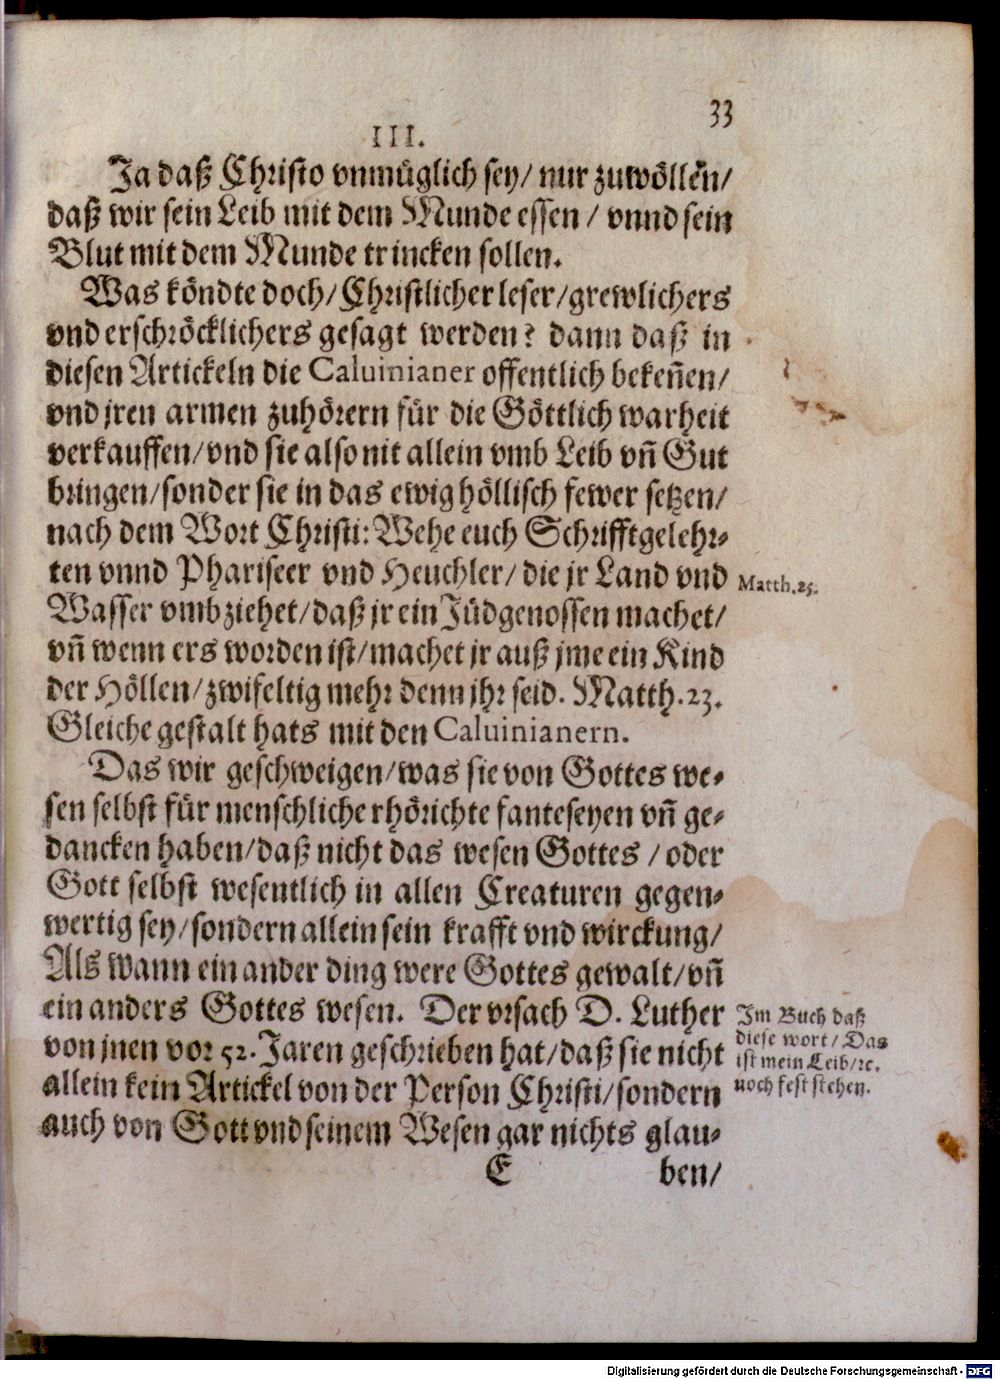 33
III.
Ja daß Christo vnmüglich sey/ nur zuwöllen/
daß wir sein Leib mit dem Munde essen / vnnd sein
Blut mit dem Munde trincken sollen.
Was köndte doch/ Christlicher leser/ grewlichers
vnd erschröcklichers gesagt werden? dann daß in
diesen Artickeln die Caluinianer offentlich bekeñen/
vnd jren armen zuhörern für die Göttlich warheit
verkauffen/ vnd sie also nit allein vmb Leib vñ Gut
bringen/ sonder sie in das ewig höllisch fewer setzen/
nach dem Wort Christi: Wehe euch Schrifftgelehr-
ten vnnd Phariseer vnd Heuchler/ die jr Land vnd
Matth.25.
Wasser vmbziehet/ daß jr ein Jüdgenossen machet/
vñ wenn ers worden ist/ machet jr auß jme ein Kind
der Höllen/ zwifeltig mehr denn jhr seid. Matth.23.
Gleiche gestalt hats mit den Caluinianern.
Das wir geschweigen/ was sie von Gottes we-
sen selbst für menschliche rhörichte fanteseyen vñ ge-
dancken haben/ daß nicht das wesen Gottes / oder
Gott selbst wesentlich in allen Creaturen gegen-
wertig sey/ sondern allein sein krafft vnd wirckung/
Als wann ein ander ding were Gottes gewalt/ vñ
ein anders Gottes wesen. Der vrsach D. Luther
von jnen vor 52. Jaren geschrieben hat/ daß sie nicht
allein kein Artickel von der Person Christi/ sondern
auch von Gott vnd seinem Wesen gar nichts glau-
Im Buch daß
diese wort / Das
ist mein Leib/ ꝛc.
noch fest stehen.
E ben/
Digitalisierung gefördert durch die Deutsche Forschungsgemeinschaft - DFG